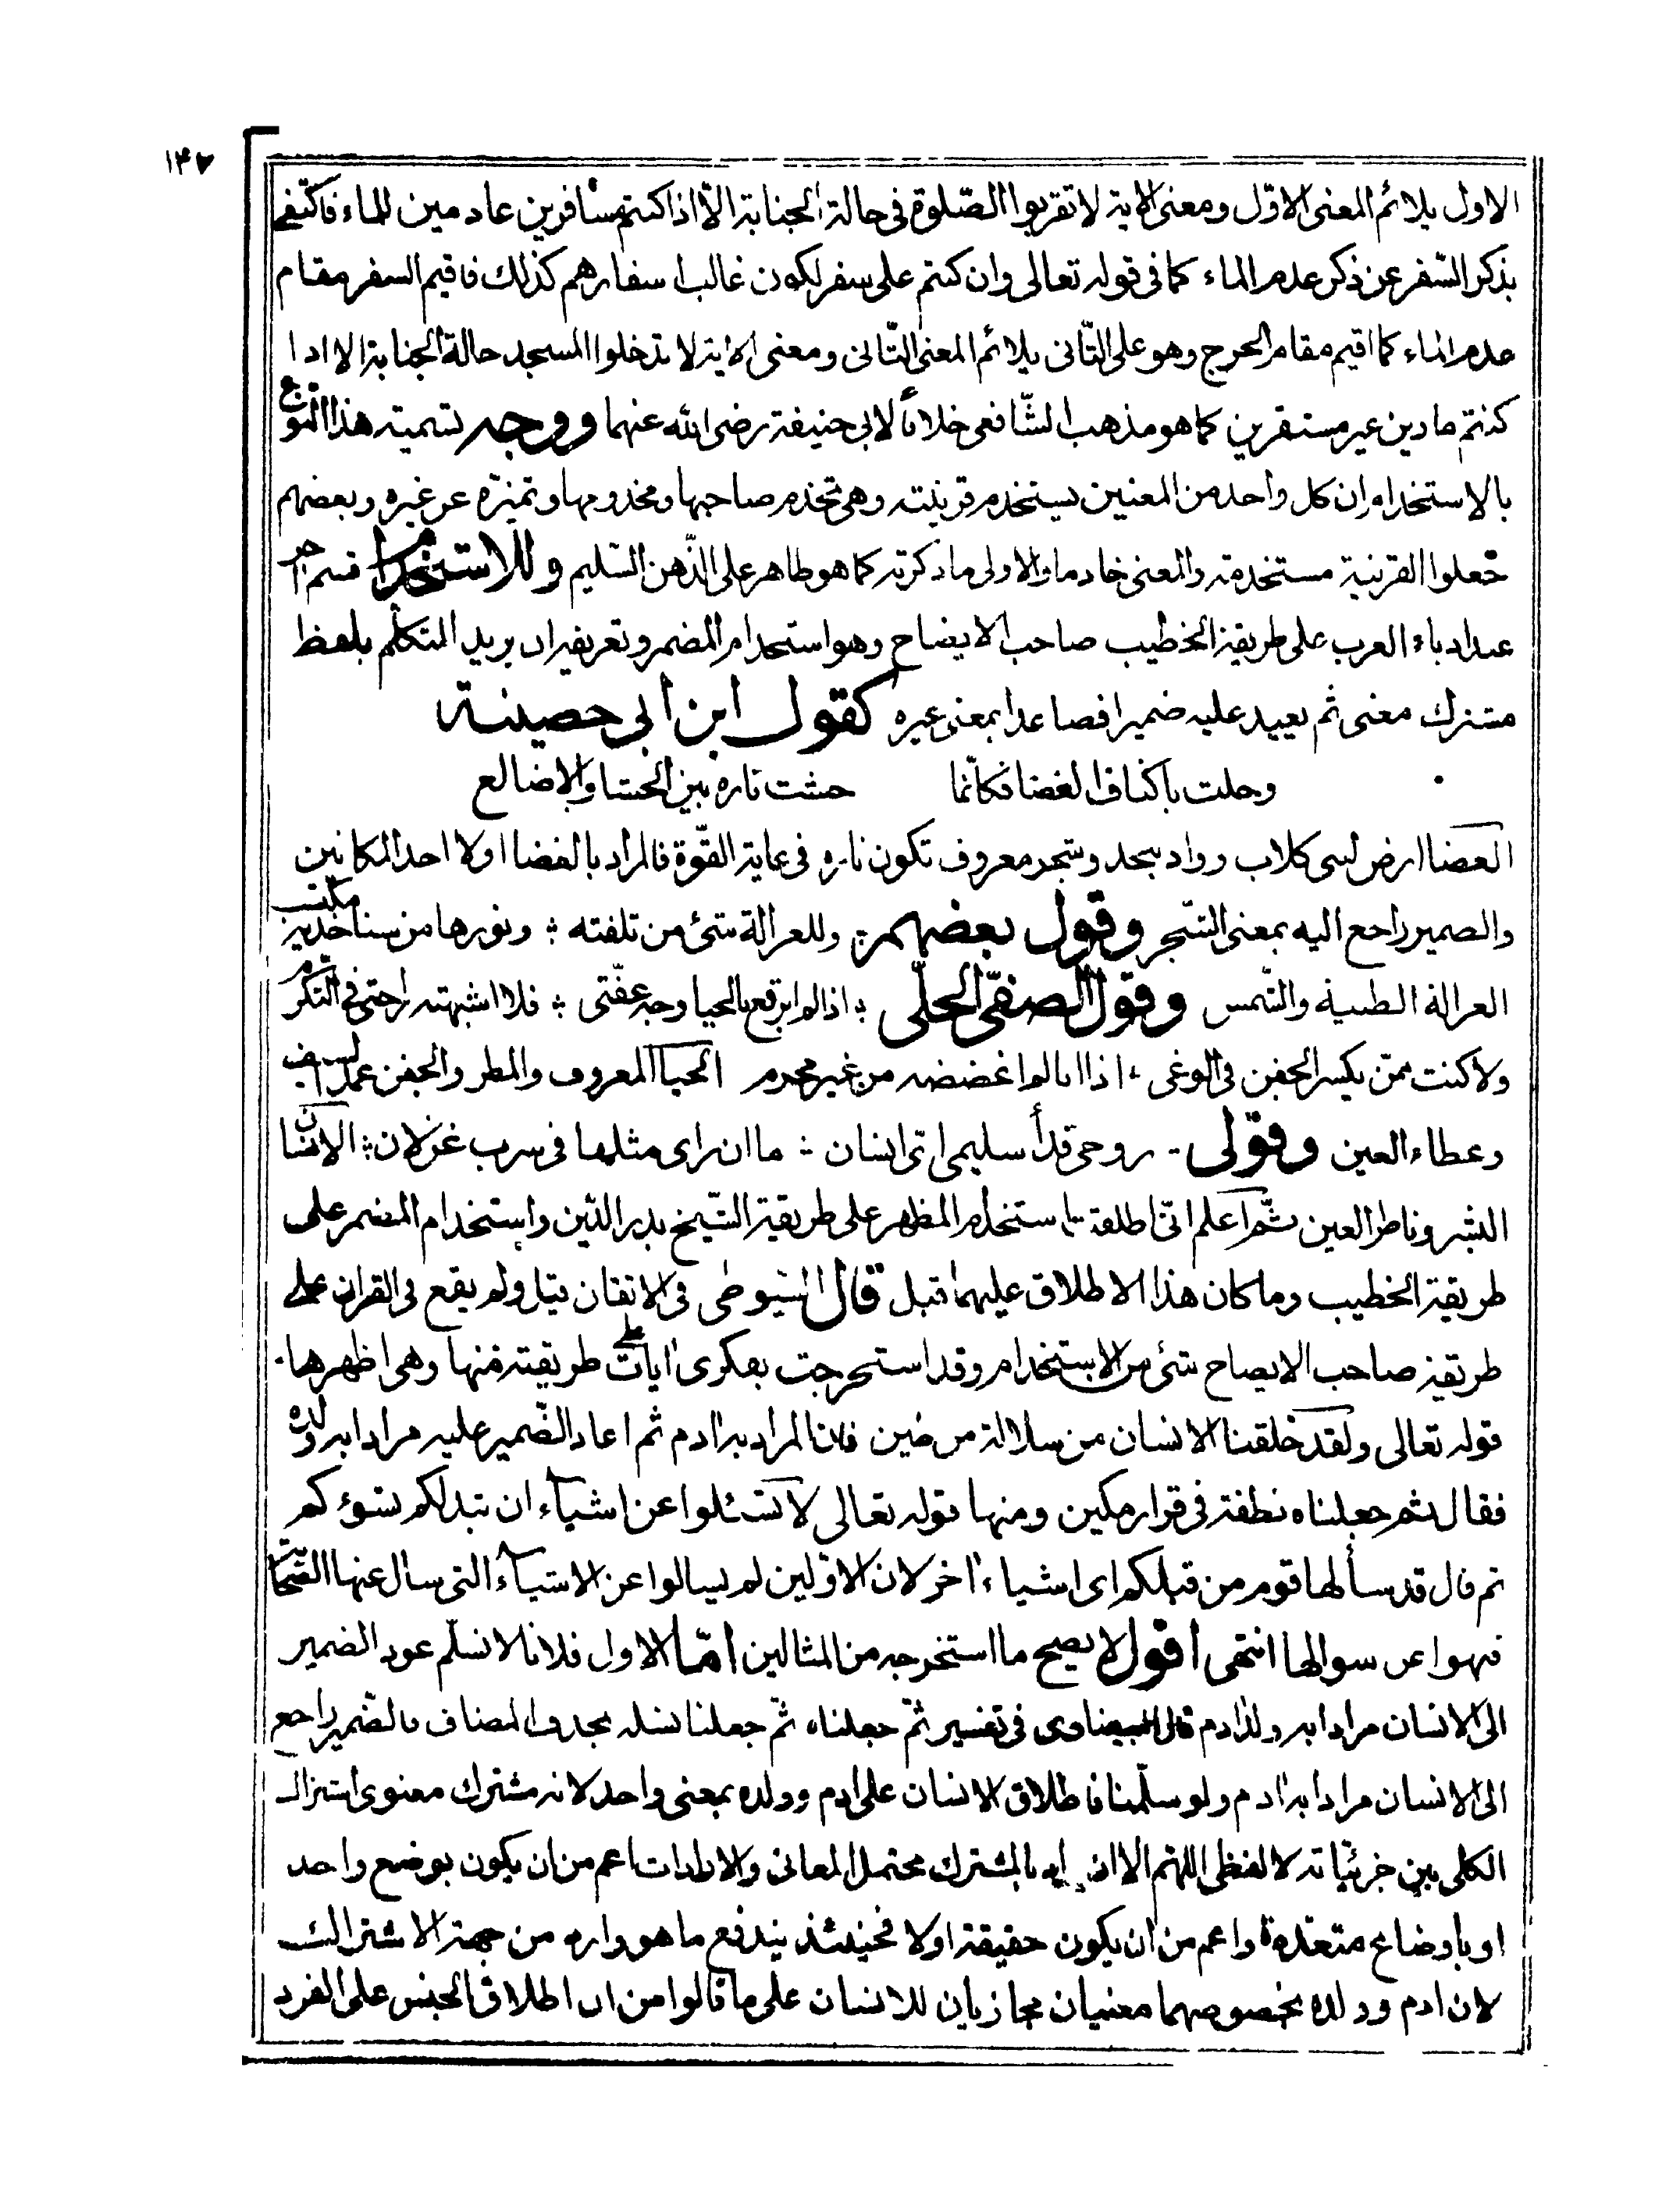 ١٤٧
الاول يلائم المعنى الاوّل ومعنى الاية لا تقربوا الصّلوة فى حالة الجنابة الّا اذا كنتم مسافرين عادمين للماء فاكتفى
بذكر السّفر عن ذكر عدم الماء كما فى قوله تعالى وان كنتم على سفر لكون غالب اسفارهم كذلك فاقيم السفر مقام
عدم الماء كما اقيم مقام الحرج وهو على الثّانى يلائم المعنى الثّانى ومعنى الاية لا تدخلوا المسجد حالة الجنابة الا اذا
كنتم مارين غير مستقرين كما هو مذهب الشّافعى خلافاً لابى حنيفة رضى الله عنهما ووجه تسمية هذا النوع
بالاستخدام ان كل واحد من المعنين يستخدم قرينته وهى تخدم صاحبها ومخدومها وتميّزه عن غيره وبعضهم
جعلوا القرينة مستخدمة والمعنى خادما والاولى ما ذكرته كما هو ظاهر على الذّهن السّليم وللاستخدام قسم اخر
عند ادباء العرب على طريقة الخطيب صاحب الايضاح وهو استخدام المضمر وتعريفه ان يريد المتكلّم بلفظ
مشترك معنى ثم يعيد عليه ضميرا فصاعدا بمعنى غيره كقول ابن ابى حصينة
وحلت باكناف الغضا فكانّما حشت ناره بين الحشا والاضالع
الغضا ارض لبنى كلاب وواد بنجد وشجر معروف تكون ناره فى غاية القّوة فالمراد بالغضا اولا احد المكانين
والضمير راجع اليه بمعنى الشّجر وقول بعضهم وللغزالة شئ من تلفته ؛ ونورها من سنا خديه مكتسب
الغزالة الظبية والشّمس وقول الصفىّ الحلّى ؛ اذا لم ابرقع بالحيا وجه عفّتى ؛ فلا اشبهته راحتى فى التكرم
ولا كنت ممّن يكسر الجفن فى الوغى ، اذا انا لم اغضضه من غير محرم الحيا المعروف والمطر والجفن غمد السيف
وغطاء العين وقولى روحى فدأ سليمى اىّ انسان ؛ ما ان راى مثلها فى سرب غزلان ؛ الانسان
البشر وناظر العين ثّم اعلم انّى اطلقت استخدام المظهر على طريقة الشّيخ بدر الدّين واستخدام المضمر على
طريقة الخطيب وما كان هذا الاطلاق عليهما قبل قال السّيوطى فى الاتقان قيل ولم يقع فى القران على
طريقة صاحب الايضاح شئ من الاستخدام وقد استخرجت بفكرى ايات على طريقته فمنها وهى اظهرها
قوله تعالى ولقد خلقنا الانسان من سلالة من طين فان المراد به ادم ثم اعاد الضّمير عليه مرادا به ولده
فقال ثم جعلناه نطفة فى قرار مكين ومنها قوله تعالى لا تسئلوا عن اشياء ان تبدلكم تسؤكم
ثم قال قد سألها قوم من قبلكم اى اشياء اخر لان الاوّلين لم يسالوا عن الاشياء التى سال عنها الصّحابة
فنهوا عن سوالها انتهى اقول لا يصح ما استخرجه من المثالين امّا الاول فلانا لا نسلّم عود الضمير
الى الانسان مرادا به ولد ادم قال البيضاوى فى تفسير ثمّ جعلناه ثمّ جعلنا نسله بحذف المضاف فالضّمير راجع
الى الانسان مرادا به ادم ولو سلّمنا فاطلاق الانسان على ادم وولده بمعنى واحد لانه مشترك معنوى اشتراك
الكلى بين جزئياته لا لفظى اللهم الا ان بالمشترك محتمل المعانى والارادات اعم من ان يكون بوضع واحد
او باوضاع متعدّدة واعم من ان يكون حقيقة اولا فحينئذ يندفع ما هو وارد من جهة الاشتراك
لان ادم وولده بخصوصهما معنيان مجازيان للانسان على ما قالوا من ان اطلاق الجنس على الفرد